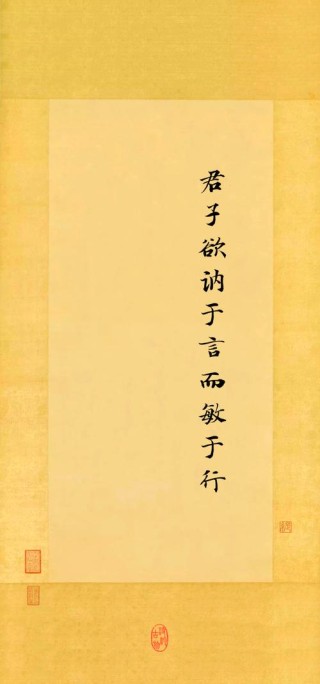 君子欲讷于言而敏于行